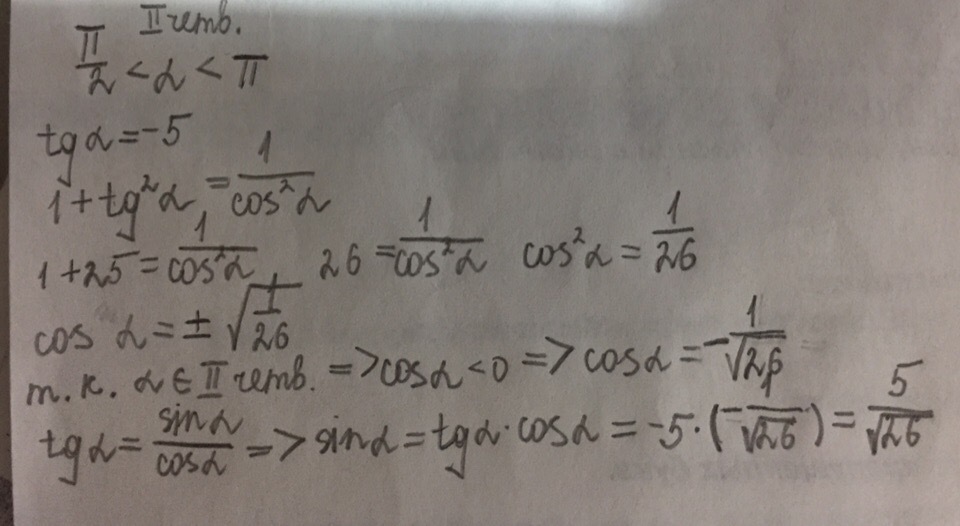 II четв.
π/2 < α < π
tg α = -5
1 + tg²α = 1/cos²α
1 + 25 = 1/cos²α 26 = 1/cos²α cos²α = 1/26
cos α = ± √(1/26)
т.к. α ∈ II четв. => cos α < 0 => cos α = - 1/√26
tg α = sin α/cos α => sin α = tg α · cos α = -5 · (- 1/√26) = 5/√26